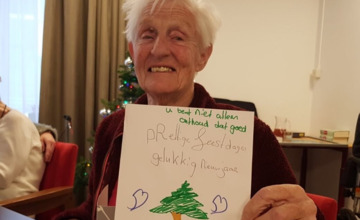 u bent niet alleen
onthoud dat goed
pRettige feestdagen
gelukkig nieuwjaar